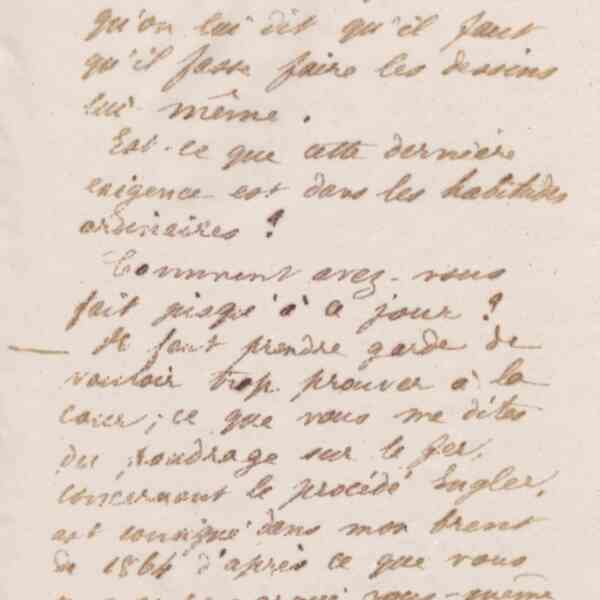 qu'on lui dit qu'il faut
qu'il fasse faire les dessins
lui-même.
Est-ce que cette dernière
exigence est dans les habitudes
ordinaires ?
Comment avez-vous
fait jusqu'à ce jour ?
— Il faut prendre garde de
vouloir trop prouver à la
cour ; ce que vous me dites
du poudrage sur le fer,
concernant le procédé Engler,
est consigné dans mon brevet
de 1864 d'après ce que vous
vous-même